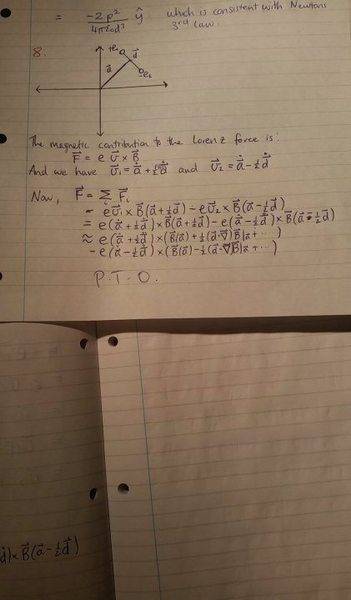 = -2p² / 4πε₀d³ ŷ, which is consistent with Newtons
3rd law.
8.
The magnetic contribution to the Lorenz force is:
F⃗ = e v⃗ × B⃗
And we have v⃗₁ = ȧ⃗ + ½ḋ⃗ and v⃗₂ = ȧ⃗ - ½ḋ⃗
Now, F⃗ = Σᵢ F⃗ᵢ
= e v⃗₁ × B⃗(a⃗ + ½d⃗) - e v⃗₂ × B⃗(a⃗ - ½d⃗)
= e(ȧ⃗ + ½ḋ⃗) × B⃗(a⃗ + ½d⃗) - e(ȧ⃗ - ½ḋ⃗) × B⃗(a⃗ - ½d⃗)
≈ e(ȧ⃗ + ½ḋ⃗) × (B⃗(a⃗) + ½(d⃗·∇)B⃗|a⃗ + ...)
- e(ȧ⃗ - ½ḋ⃗) × (B⃗(a⃗) - ½(d⃗·∇)B⃗|a⃗ + ...)
P.T.O.
d⃗) × B⃗(a⃗ - ½d⃗)